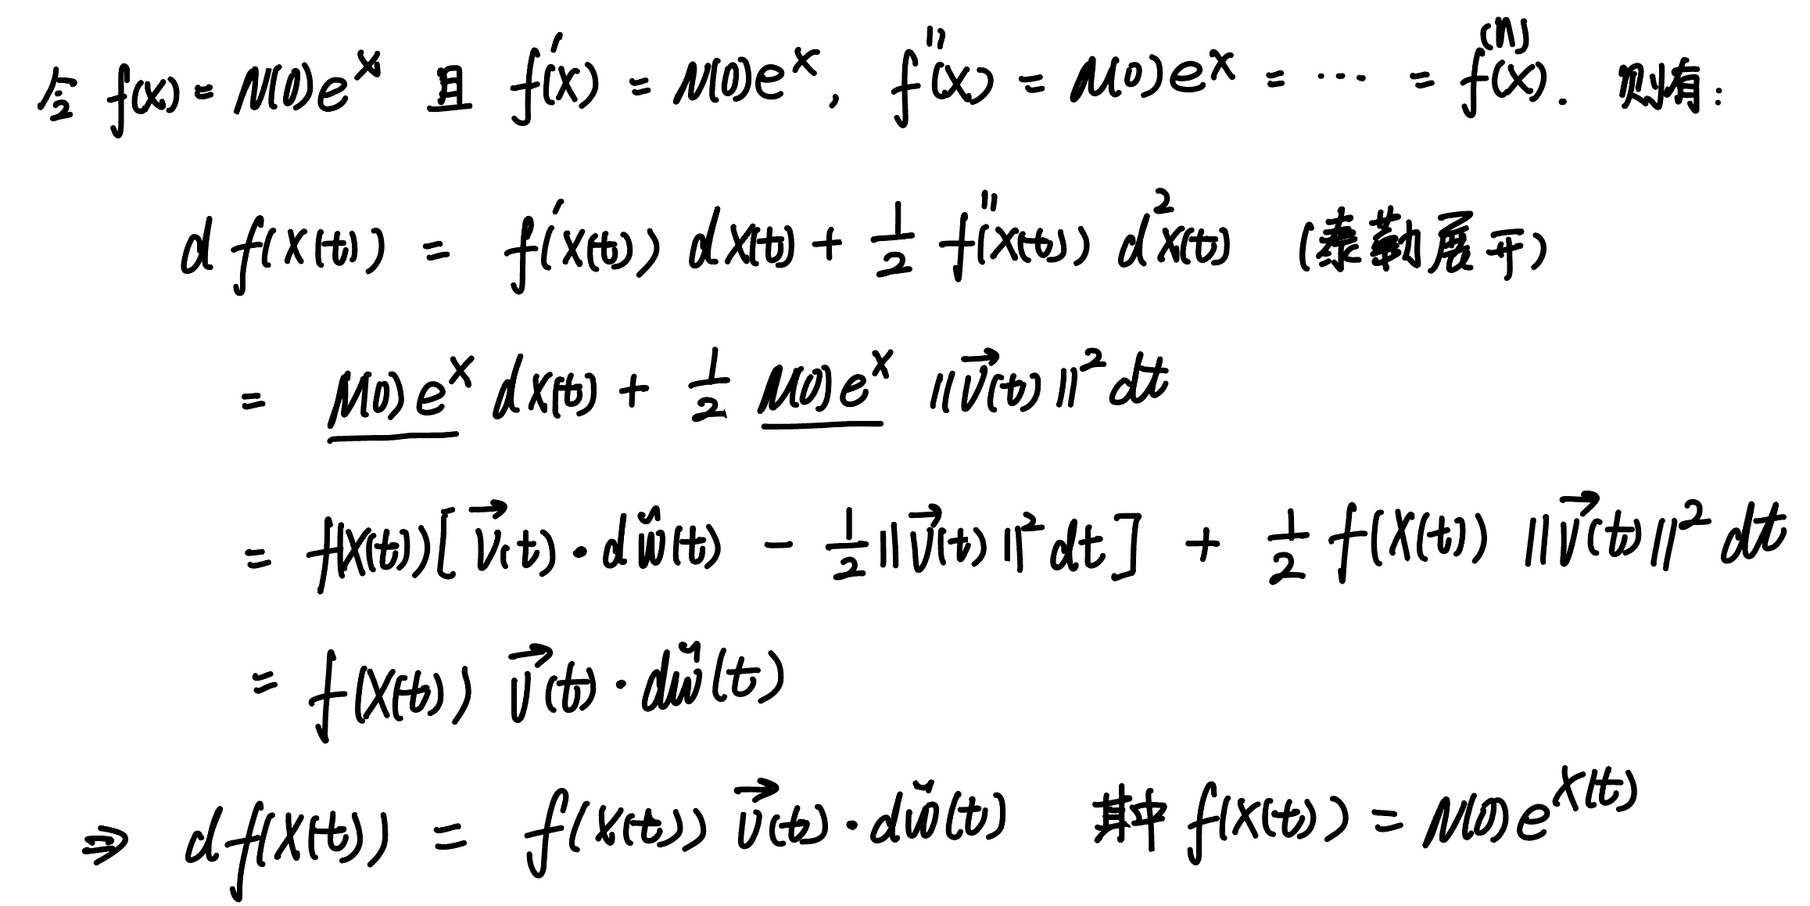 令 f(x) = M(0)e^x 且 f'(x) = M(0)e^x, f''(x) = M(0)e^x = ⋯ = f^(n)(x). 则有:
d f(X(t)) = f'(X(t)) dX(t) + 1/2 f''(X(t)) d²X(t) (泰勒展开)
= M(0)e^X dX(t) + 1/2 M(0)e^X ||V⃗(t)||² dt
= f(X(t))[V⃗(t)·dW̃(t) - 1/2||V⃗(t)||² dt] + 1/2 f(X(t)) ||V⃗(t)||² dt
= f(X(t)) V⃗(t)·dW̃(t)
⇒ d f(X(t)) = f(X(t)) V⃗(t)·dW̃(t) 其中 f(X(t)) = M(0)e^X(t)